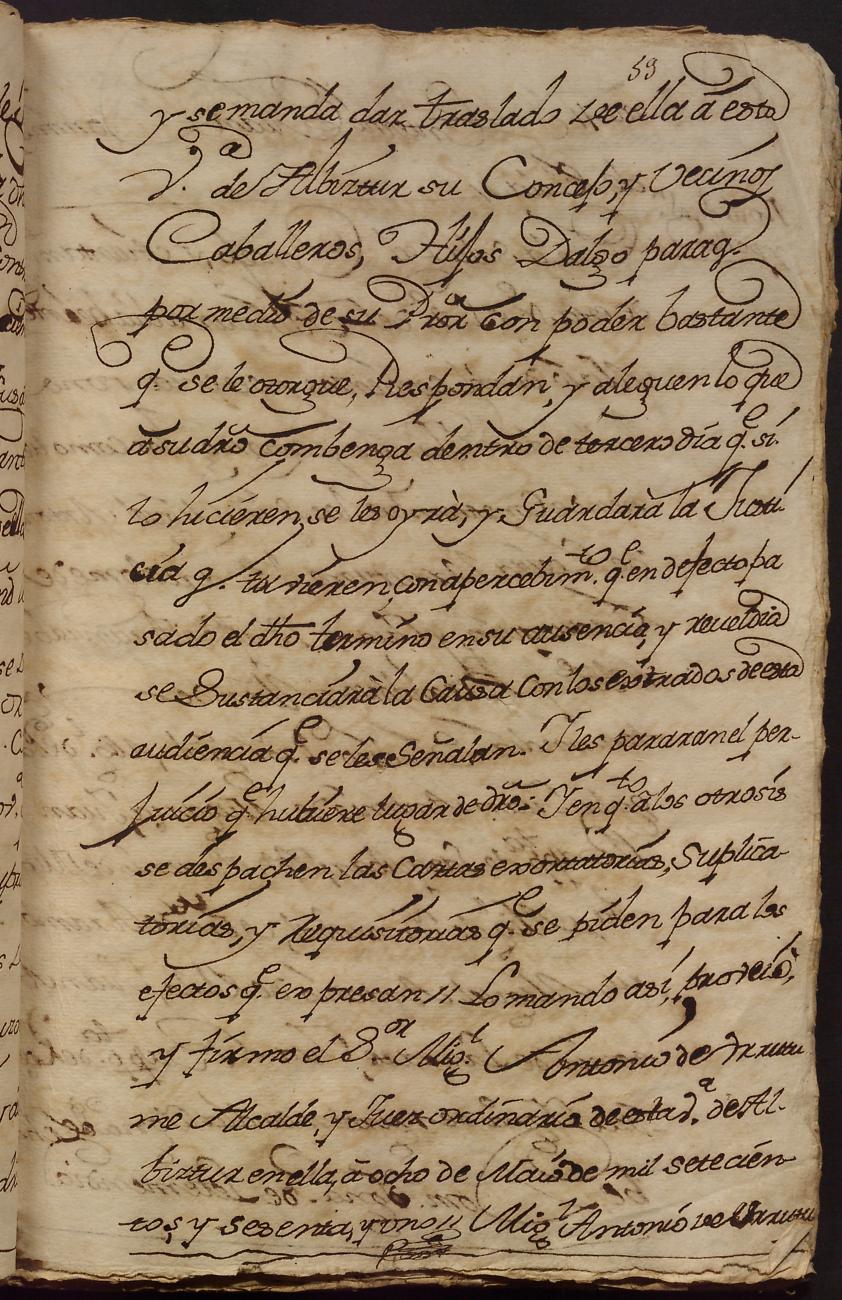 59
y se manda dar traslado de ella á esta
V.ª de Albiztur su Concejo, y Vecinos
Caballeros, Hijos Dalgo para q.
por medio de su Pror con poder bastante
q. se le otorgue, Respondan, y aleguen lo que
á su dro combenga dentro de tercero dia q.e si
lo hicieren, se les oyrà, y Guardarà la Justi
cia q. tuvieren, con apercebim.to q.e en defecto pa
sado el dho termino en su ausencia, y reveldia
se Sustanciarà la Causa con los extrados de esta
audiencia q.e se les Señalan. I les pararan el per-
juicio q.e hubiere lugar de dro: I en q.to a los otrosis
se despachen las Cartas exortatorias, Suplica-
torias, y Requisitorias q.e se piden para los
efectos q.e expresan // Lo mando asi, proveiò,
y firmo el S.or Mig.l Antonio de Urrutu
me Alcalde, y Juez ordinario de esta V.ª de Al-
biztur en ella, à ocho de Maio de mil setecien-
tos, y sesenta, y uno // Mig.l Antonio de Urrutu